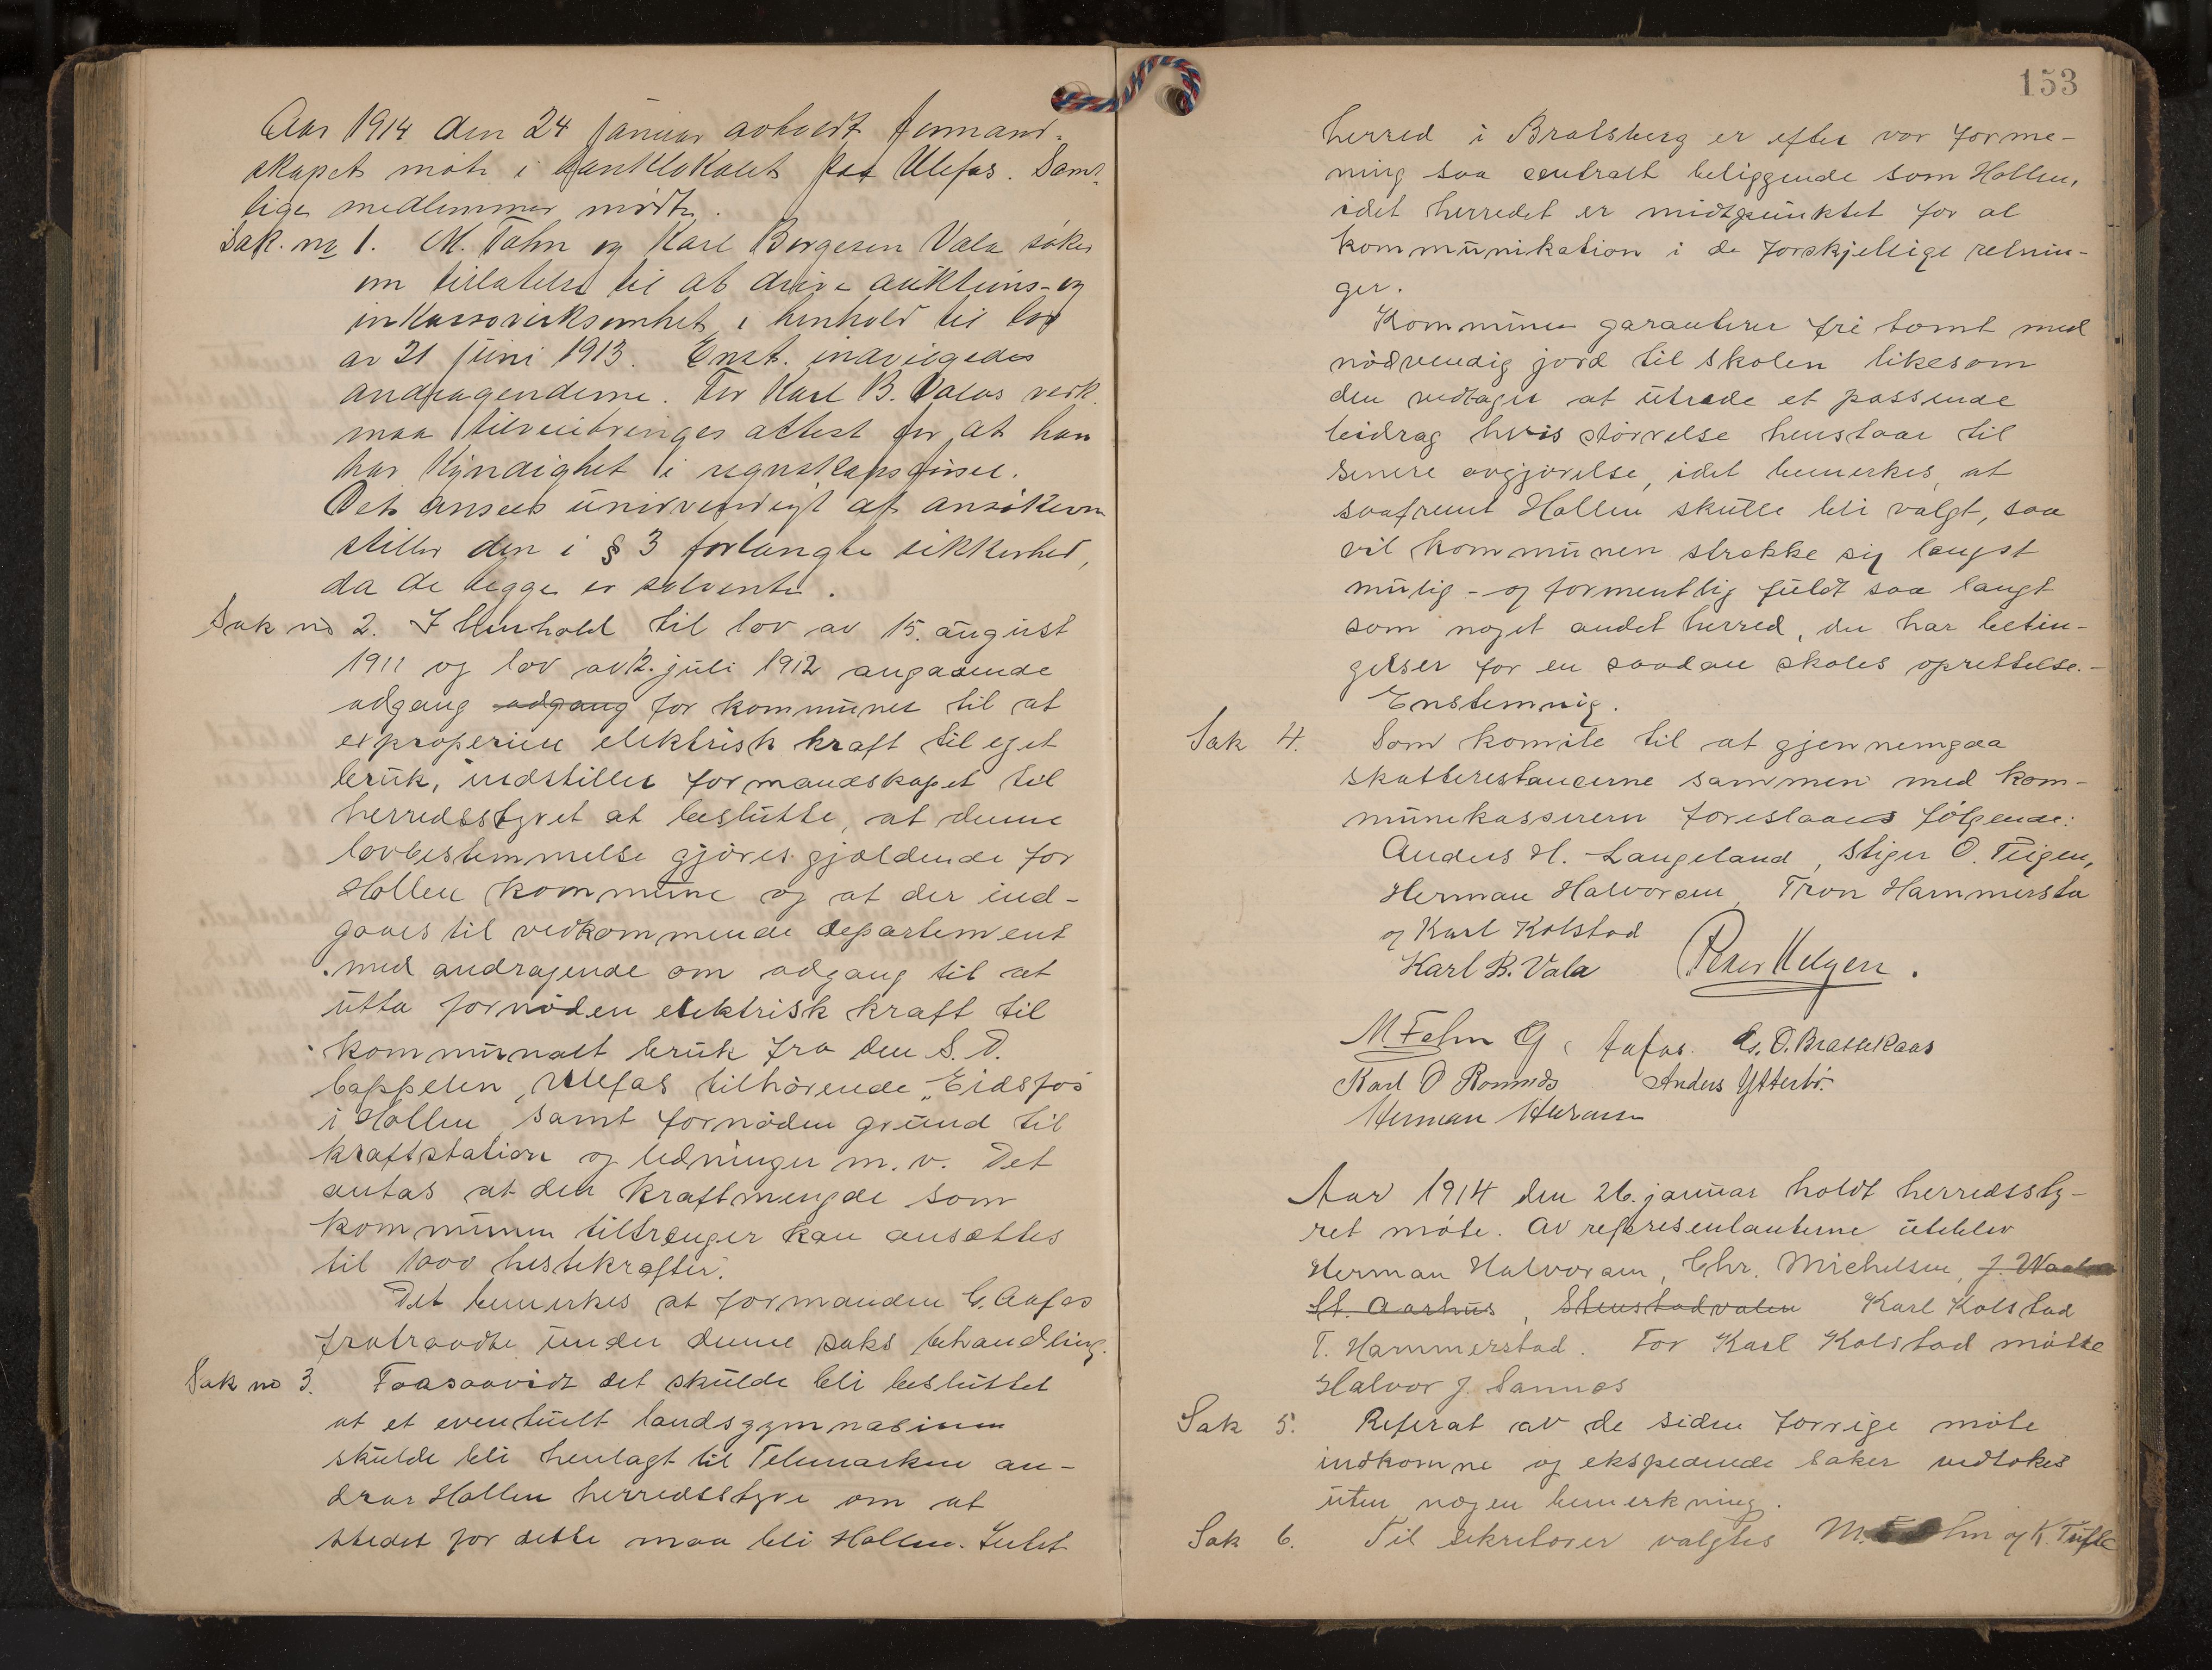 Aar 1914 den 24 januar avholdt formand-
skapet møte i banklokalet paa Ulefos. Samt-
lige medlemmer mødte.
Sak. no 1. M. Fahn og Karl Borgesen Vala søker
om tillatelse til at drive auktions- og
inkassovirksomhet i henhold til lov
av 21 juni 1913. Enst. indvilgedes
andragenderne. For Karl B. Valas verk.
maa tilveiebringes attest for at han
har kyndighet i regnskapsførsel.
Det ansees unødvendigt at ansøkerne
stiller den i § 3 forlangte sikkerhed,
da de begge er solvente.
Sak no 2. I henhold til lov av 15. august
1911 og lov av 12. juli 1912 angaaende
adgang adgang for kommuner til at
expropriere elektrisk kraft til eget
bruk, indstiller formandskapet til
herredsstyret at beslutte, at denne
lovbestemmelse gjøres gjældende for
Hollen kommune og at der ind-
gaaes til vedkommende departement
med andragende om adgang til at
utta fornøden elektrisk kraft til
kommunalt bruk fra den S. D.
Cappelen, Ulefos tilhørende „Eidsfos
i Hollen samt fornøden grund til
kraftstation og ledninger m. v. Det
antas at den kraftmengde som
kommunen tiltrænger kan ansættes
til 1000 hestekræfter.
Det bemerkes at formanden G. Aafos
fratraadte under denne saks behandling.
Sak no 3. Faasaavidt det skulde bli besluttet
at et eventuelt landsgymnasium
skulde bli henlagt til Telemarken an-
drar Hollen herredsstyre om at
stedet for dette maa bli Hollen. Intet
153
herred i Bratsberg er efter vor forme-
ning saa centralt beliggende som Hollen,
idet herredet er midtpunktet for al
kommunikation i de forskjellige retnin-
ger.
Kommunen garanterer fri tomt med
nødvendig jord til skolen likesom
den vedtager at utrede et passende
bidrag hvis størrelse henstaar til
senere avgjørelse, idet bemerkes, at
saafremt Hollen skulle bli valgt, saa
vil kommunen strekke sig lengst
mulig - og formentlig fuldt saa langt
som noget andet herred, der har betin-
gelser for en saadan skoles oprettelse.-
Enstemmig.
Sak 4. Som komite til at gjennemgaa
skatterestancerne sammen med kom-
munekasseren foreslaaes følgende:
Anders H. Langeland, Stiger O. Teigen,
Herman Halvorsen, Tron Hammersta
og Karl Kolstad
Karl B. Vala Peder Helgen.
M Fahn G. Aafos. G. O. Brattekaas
Karl O Romnes Anders Ytterbö.
Herman
Aar 1914 den 26. januar holdt herredssty-
ret møte. Av representanterne uteblev
Herman Halvorsen, Chr. Michelsen, J. Waala
St. Aarhus, Stenstadvalen Karl Kolstad
T. Hammerstad. For Karl Kolstad møtte
Halvor J. Sannes
Sak 5. Referat av de siden forrige møte
indkomne og ekspederede saker vedtokes
uten nogen bemerkning.
Sak 6. Til sekretærer valgtes M. Fahn og K. Tufte